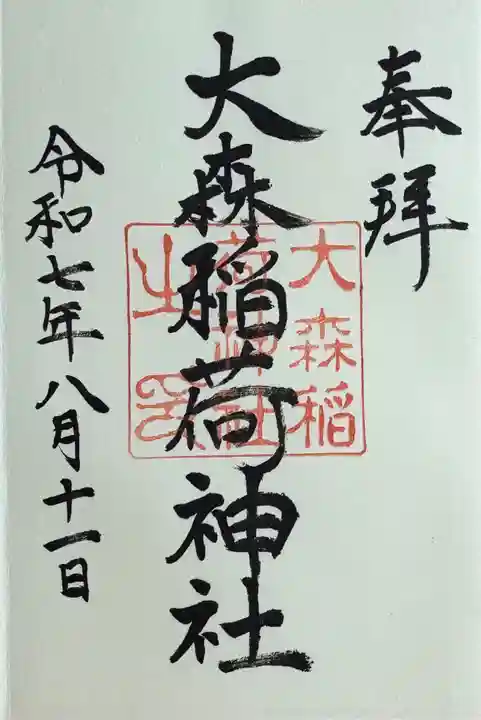 奉拝
大森稲荷神社
大森稲
荷神社
之印
令和七年八月十一日